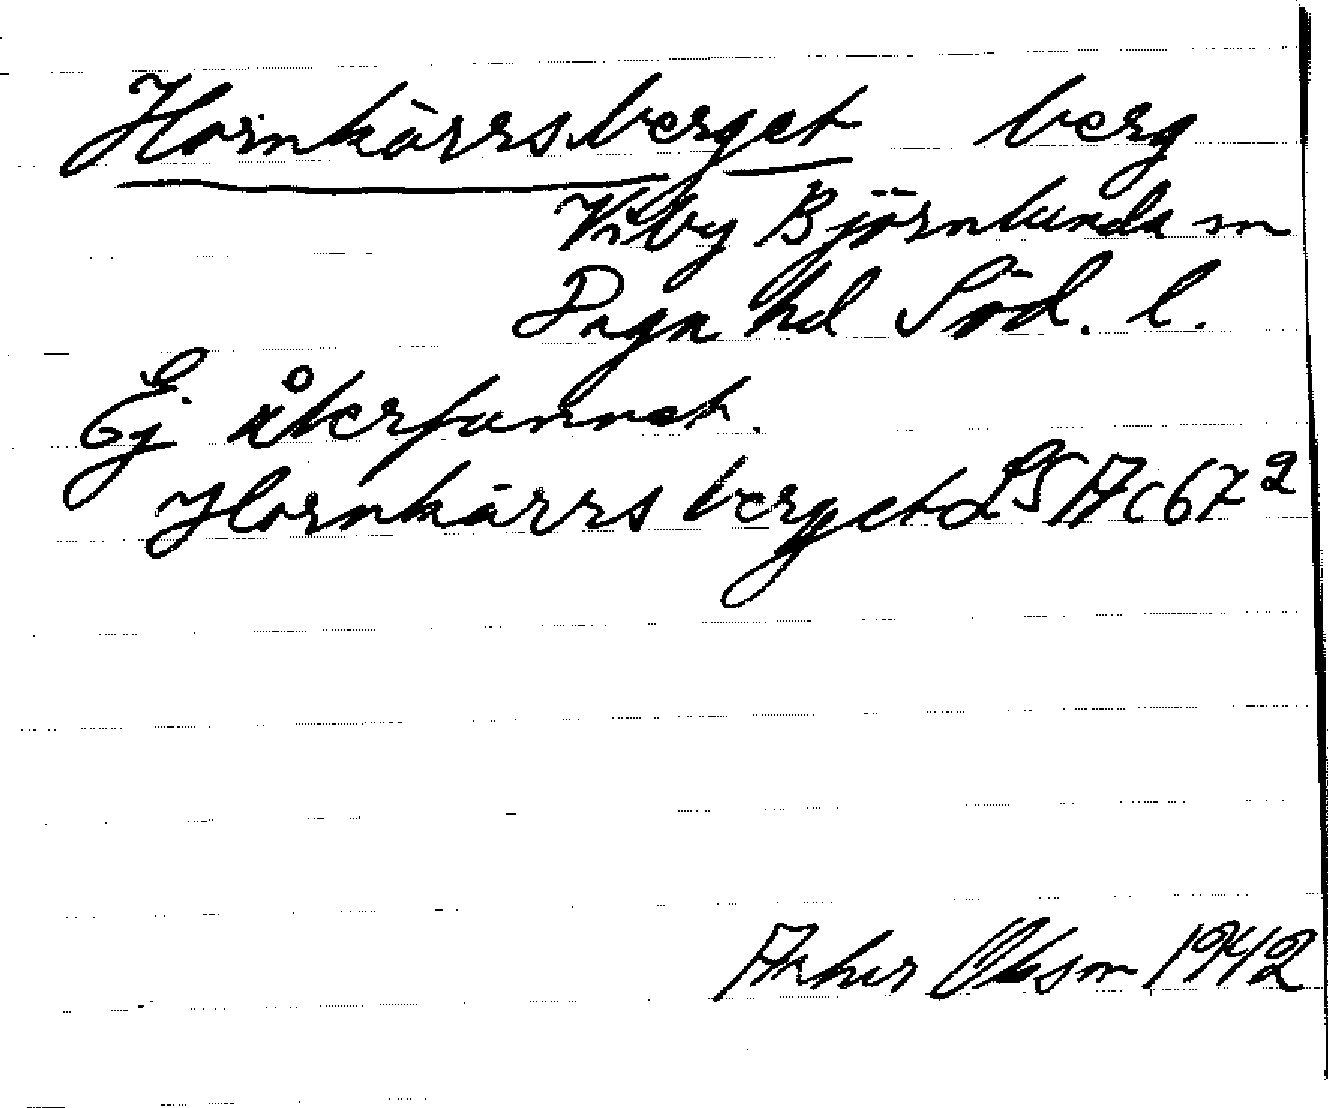 Hornkärrsberget berg
Viby Björnlunda sn
Daga hd Söd. l.
Ej återfunnet.
Hornkärrsberget LSA C67²
Olsson 1942